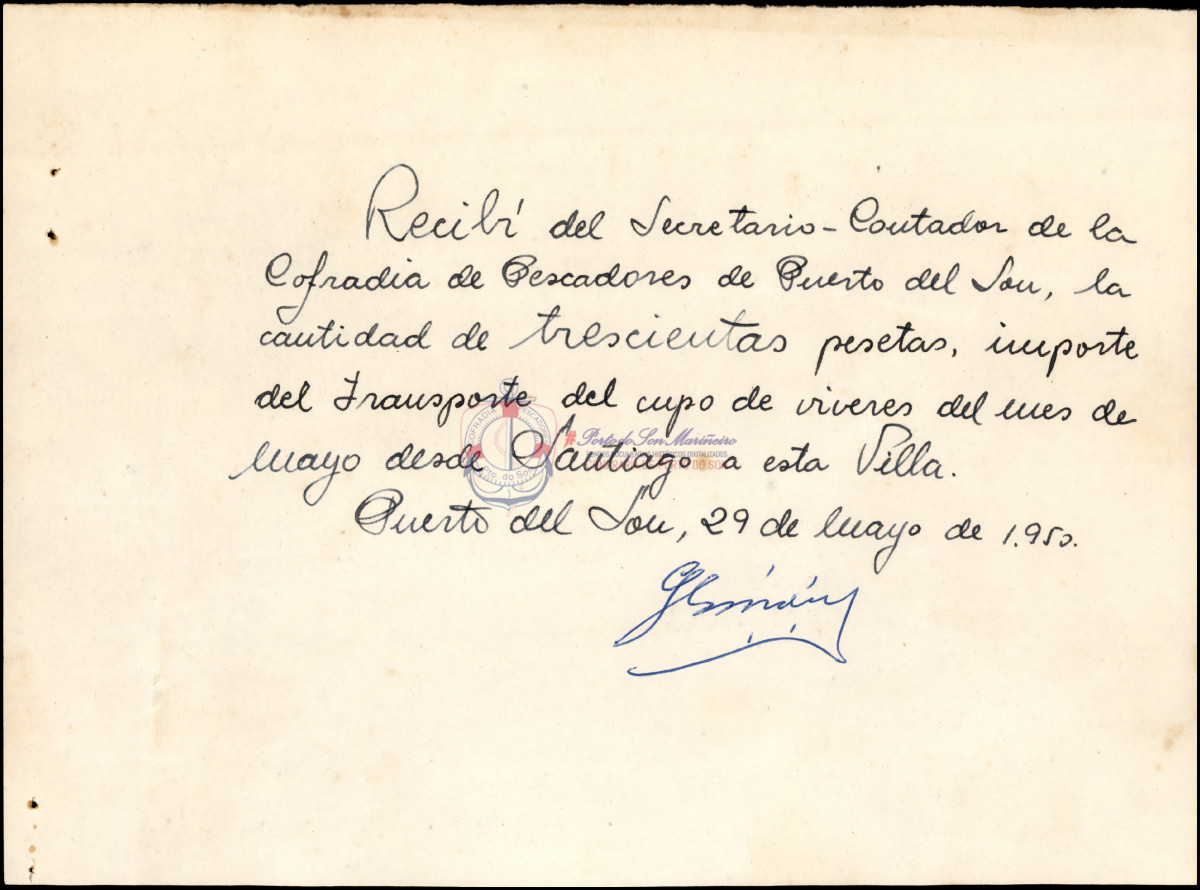 Recibí del Secretario-Contador de la
Cofradia de Pescadores de Puerto del Son, la
cantidad de trescientas pesetas, importe
del Transporte del cupo de viveres del mes de
COFRADIA PESCADORES
#Porto do Son Mariñeiro
FONDOS DOCUMENTAIS HISTÓRICOS DIGITALIZADOS
Mayo desde Santiago a esta Villa.
Pto. do Son
Puerto del Son, 29 de Mayo de 1.950.